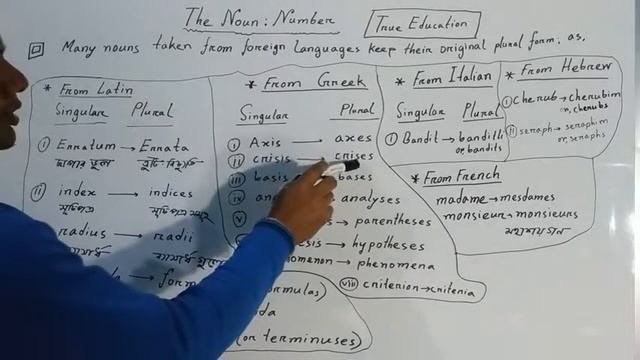 The Noun: Number
True Education
Many nouns taken from foreign languages keep their original plural form. as,
* From Latin
Singular Plural
(i) Erratum → Errata
(ii) index → indices
radius → radii
* From Greek
Singular Plural
(i) Axis → axes
(ii) crisis → crises
(iii) basis bases
(iv) an analyses
(v) parentheses
esis → hypotheses
nomenon → phenomena
(viii) criterion → criteria
ormulas)
da
(or terminuses)
* From Italian
Singular Plural
(i) Bandit → banditti
or, bandits
* From Hebrew
(i) Cherub → cherubim
or, cherubs
(ii) seraph → seraphim
or, seraphs
* From French
madame → mesdames
monsieur → monsieurs